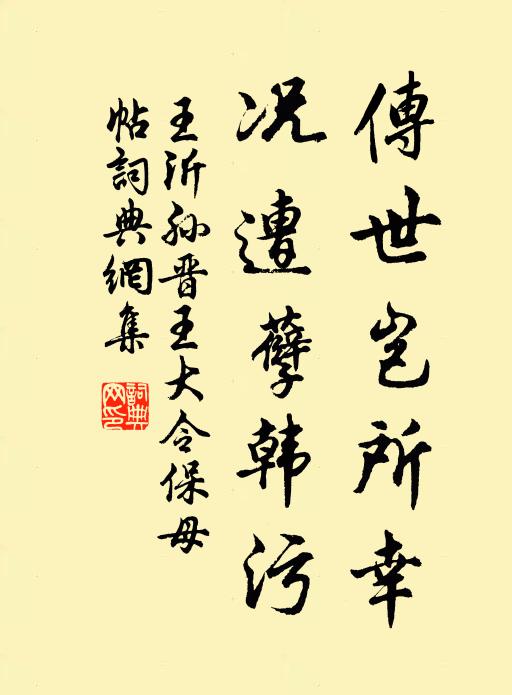 傳世豈所幸
況遭孽韩污
王沂孙晋王大令保母
帖詞典網集
詞典网印